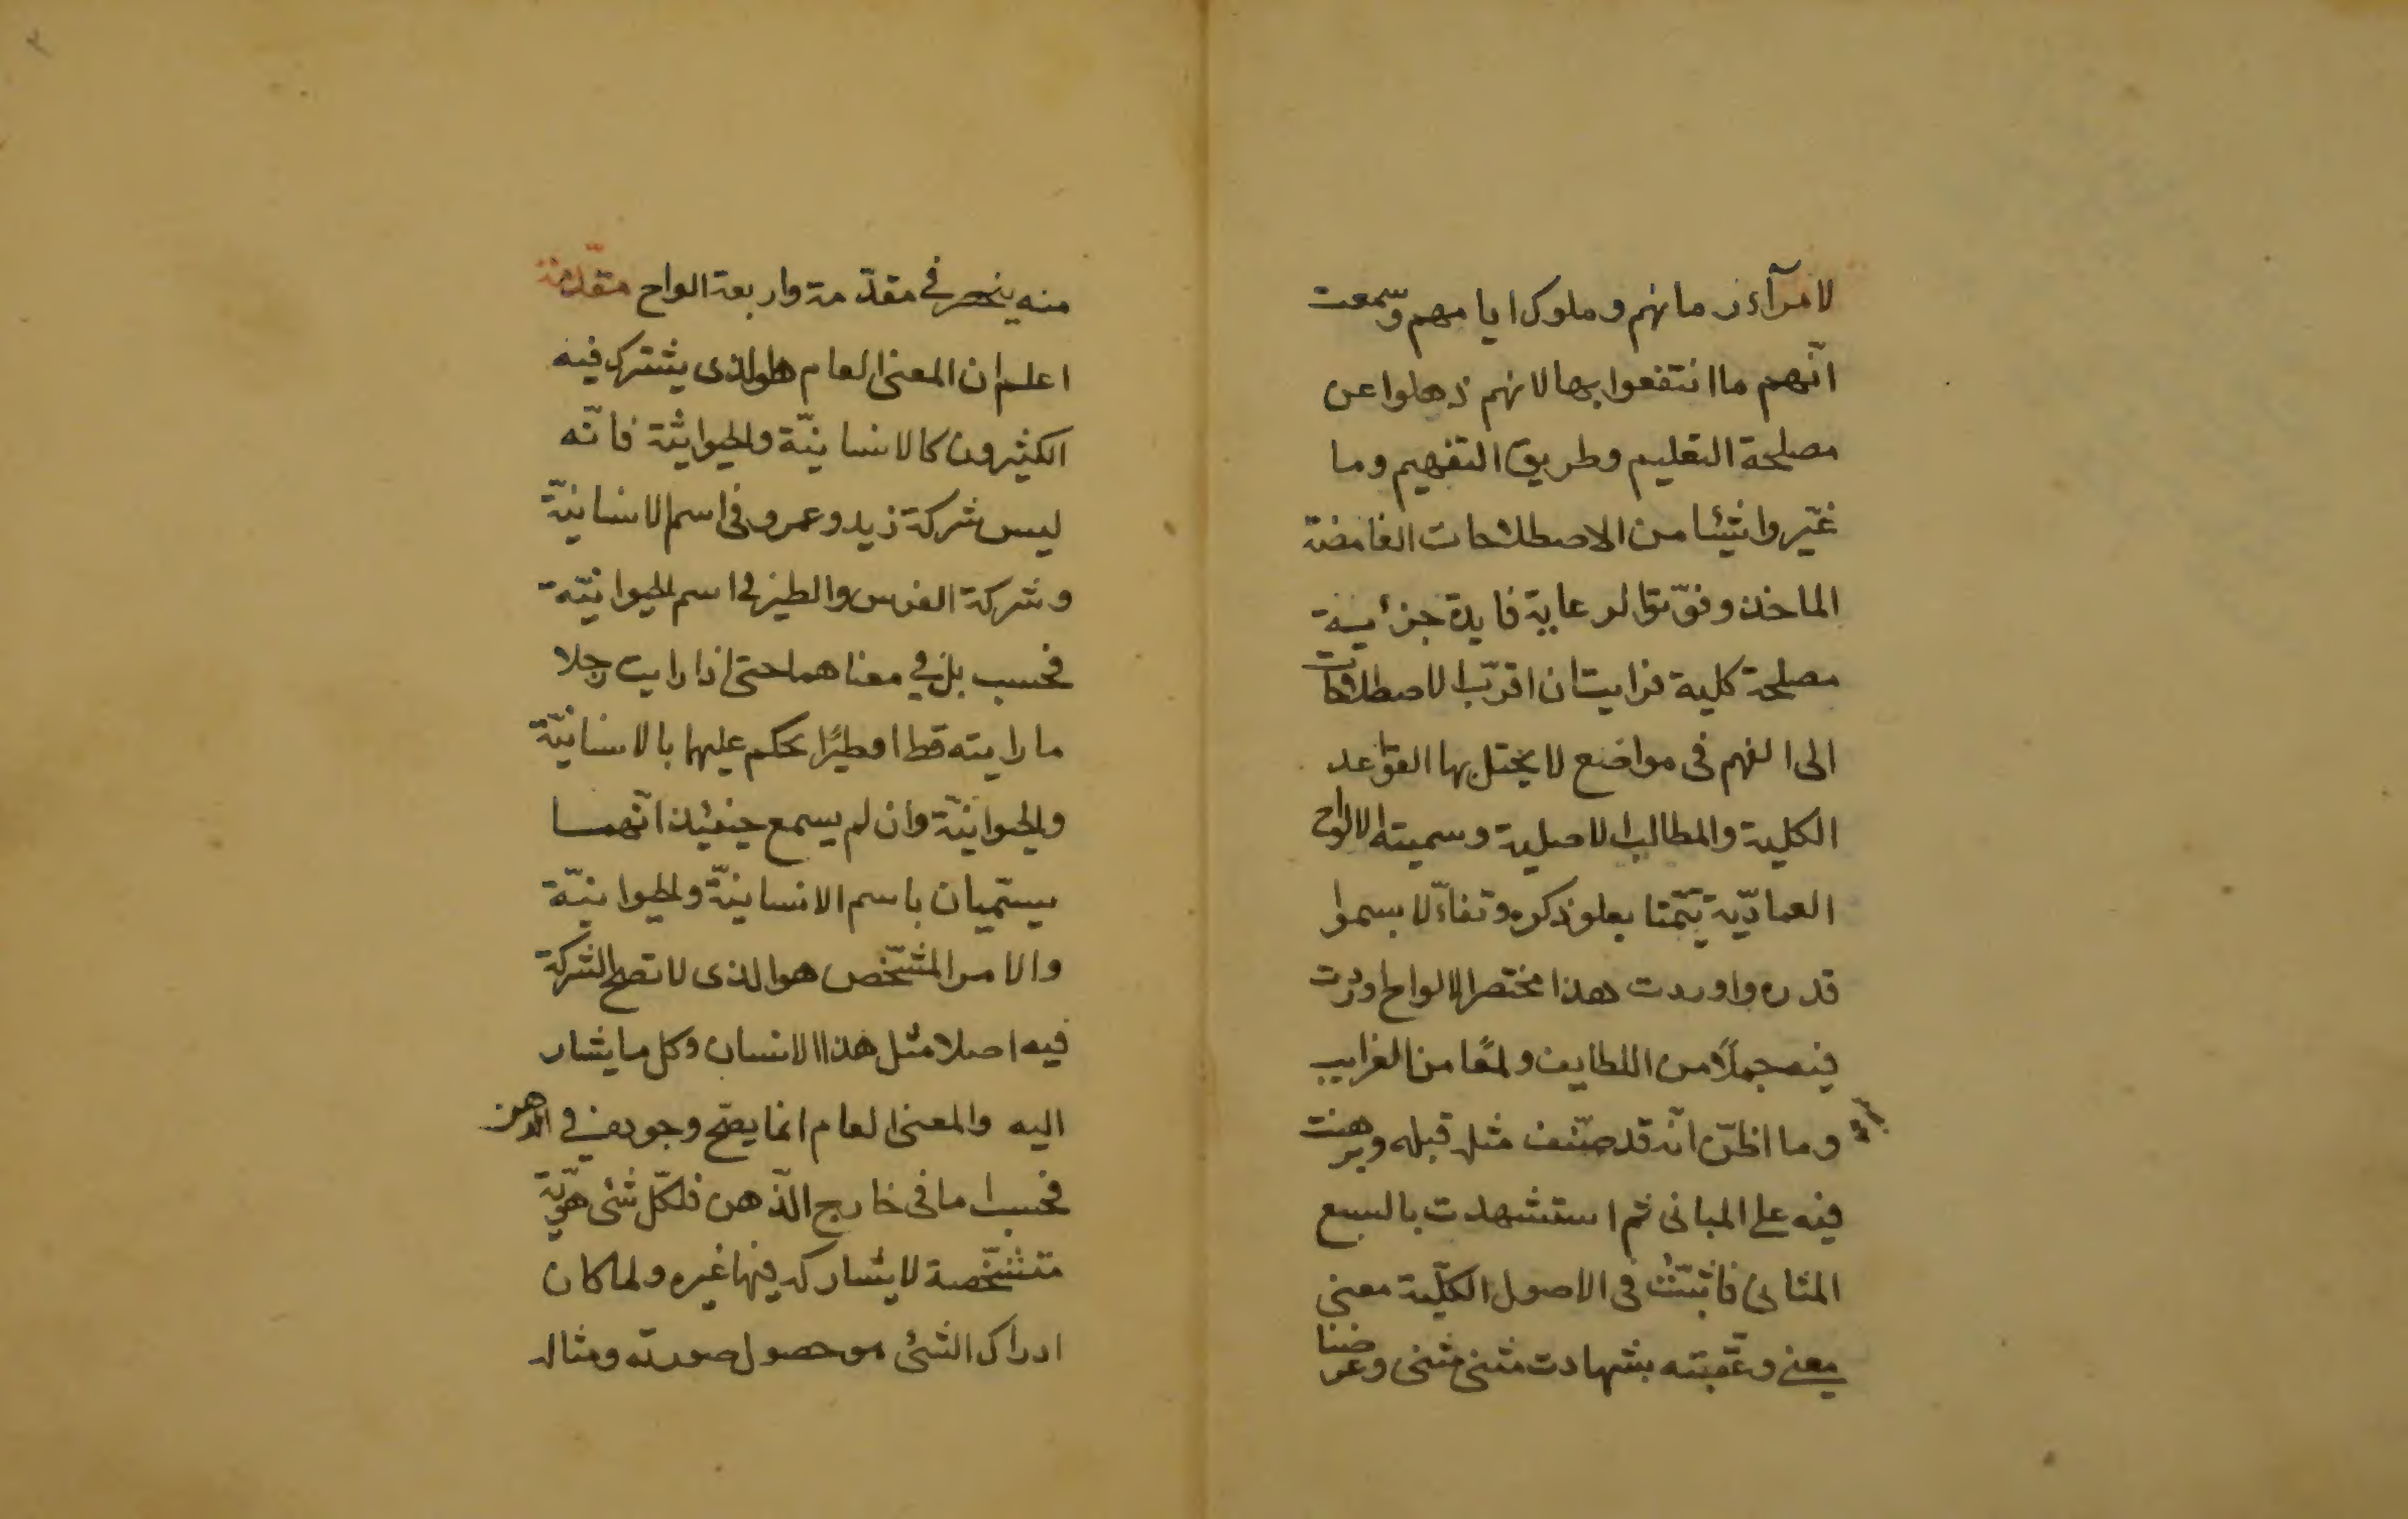 لامرآء زمانهم وملوك ايامهم وسمعت
انّهم ما انتفعوا بها لانهم ذهلوا عن
مصلحة التعليم وطريق التفهيم وما
غيّروا شيئا من الاصطلاحات الغامضة
الماخذ وفوّتوا لرعاية فايدة جزئية
مصلحة كلية فرايت ان اقرّب الاصطلاحات
الى الفهم فى مواضع لا يختل بها القواعد
الكلية والمطالب الاصلية وسميته الالواح
العماديّة تيمّنا بعلو ذكره وتفاءّلا بسموا
قدره واوردت هذا مختصر الالواح اوردت
فيه جملًا من اللطايف ولمعًا من الغرايب
وما اظنّ انّه قد صنّف مثله قبله وبرهنت
فيه على المبانى ثم استشهدت بالسبع
المثانى فاثبتّ فى الاصول الكلّية معنى
معنى وعقّبته بشهادت مثنى مثنى وغرضنا
منه ينحصر في مقدّمة واربعة الواح مقدّمة
اعلم ان المعنى العام هو الذى يشترك فيه
الكثيرون كالانسانيّة والحيوانيّة فانّه
ليس شركة زيد وعمرو فى اسم الانسانيّة
وشركة الفرس والطير في اسم الحيوانيّة
فحسب بل في معناهما حتى اذا رايت رجلا
ما رايته قط او طيرًا يحكم عليهما بالانسانيّة
والحيوانيّة وان لم يسمع حينئذ انّهما
يسمّيان باسم الانسانيّة والحيوانيّة
والامر المشخّص هو الذى لا تصح الشركة
فيه اصلا مثل هذا الانسان وكل ما يشار
اليه والمعنى العام انما يصح وجوده في الذهن
فحسب اما فى خارج الذّهن فلكلّ شئ هويّة
متشخّصة لا يشاركه فيها غيره ولما كان
ادراك الشئ هو حصول صورته ومثاله